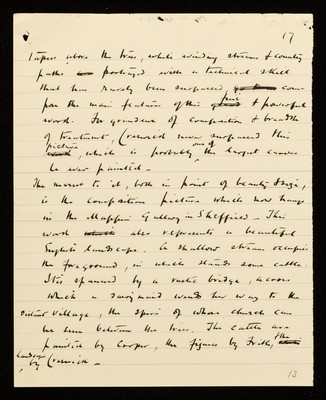 17
tapers above the trees, while winding streams & country
paths portrayed with a technical skill
that has rarely been surpassed, com-
pose the main features of this fine & powerful
work. For grandeur of composition & breadth
of treatment, Creswick never surpassed this
picture, which is probably one of the largest canvas
he ever painted.
The nearest to it, both in point of beauty & size,
is the composition picture which now hangs
in the Mappin Gallery in Sheffield. This
work also represents a beautiful
English landscape. A shallow stream occupies
the foreground, in which stands some cattle.
It is spanned by a rustic bridge, across
which a dairy maid wends her way to the
distant village, the spire of whose church can
be seen between the trees. The cattle are
painted by Cooper, the figures by Frith, & the
landscape by Creswick.
13